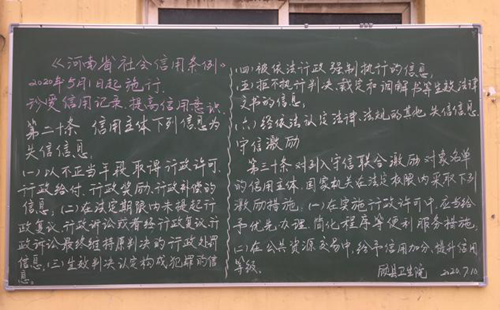 《河南省社会信用条例》
2020年5月1日起施行.
珍爱信用记录 提高信用意识
第二十条 信用主体下列信息为
失信信息.
(一)以不正当手段取得行政许可.
行政给付.行政奖励.行政补偿的
信息.(二)在法定期限内未提起行
政复议.行政诉讼或者经行政复议.行
政诉讼最终维持原判决的行政处罚
信息.(三)生效判决认定构成犯罪的信
息。
(四)被依法行政强制执行的信息.
(五)拒不执行判决.裁定和调解书等生效法律
文书的信息.
(六)经依法认定法律、法规的其他失信信息.
守信激励
第三十条对列入守信联合激励对象名单
的信用主体.国家机关在法定权限内采取下列
激励措施.(一)在实施行政许可中.应当给
予优先办理.简化程序等便利服务措施.
(二)在公共资源交易中.给予信用加分、提升信用
等级.
卫生院 2020.7.10